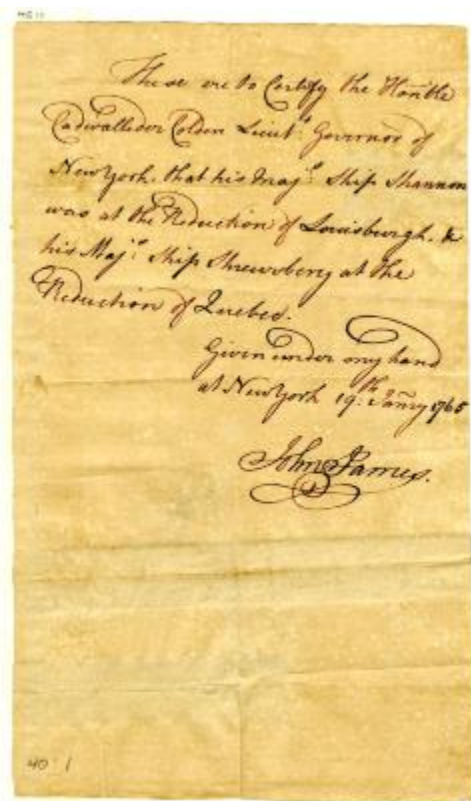 These are to Certify the Hon'ble
Cadwallider Colden Lieut.t Governor of
New York. that his Maj.s Ship Shannon
was at the Reduction of Louisburgh. &
his Maj.s Ship Shrewsberry at the
Reduction of Quebec.
Given under my hand
at New York 19.th Janry 1765
John James.
40 1